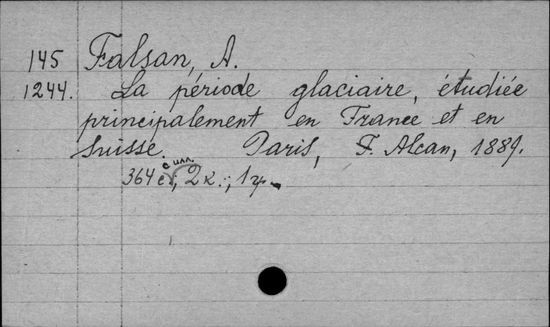 145 Falsan, A.
1244. La période glaciaire, étudiée
principalement en France et en
Suisse. Paris, F. Alcan, 1889.
с илл.
364 с., 2 к.;